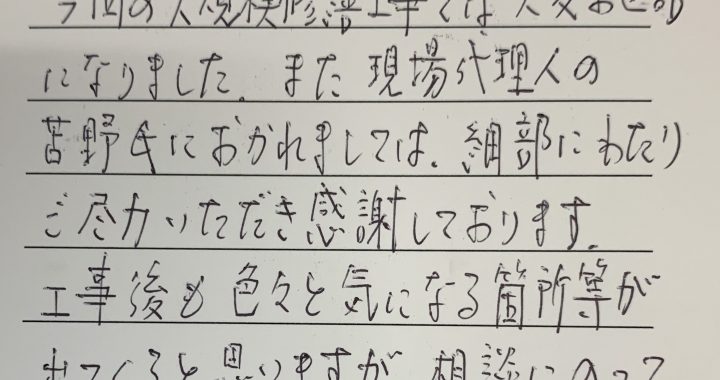 今回の大規模修繕工事では大変お世話
になりました。また現場代理人の
苫野氏におかれましては、細部にわたり
ご尽力いただき感謝しております。
工事後も色々と気になる箇所等が
出てくると思いますが、相談にのって